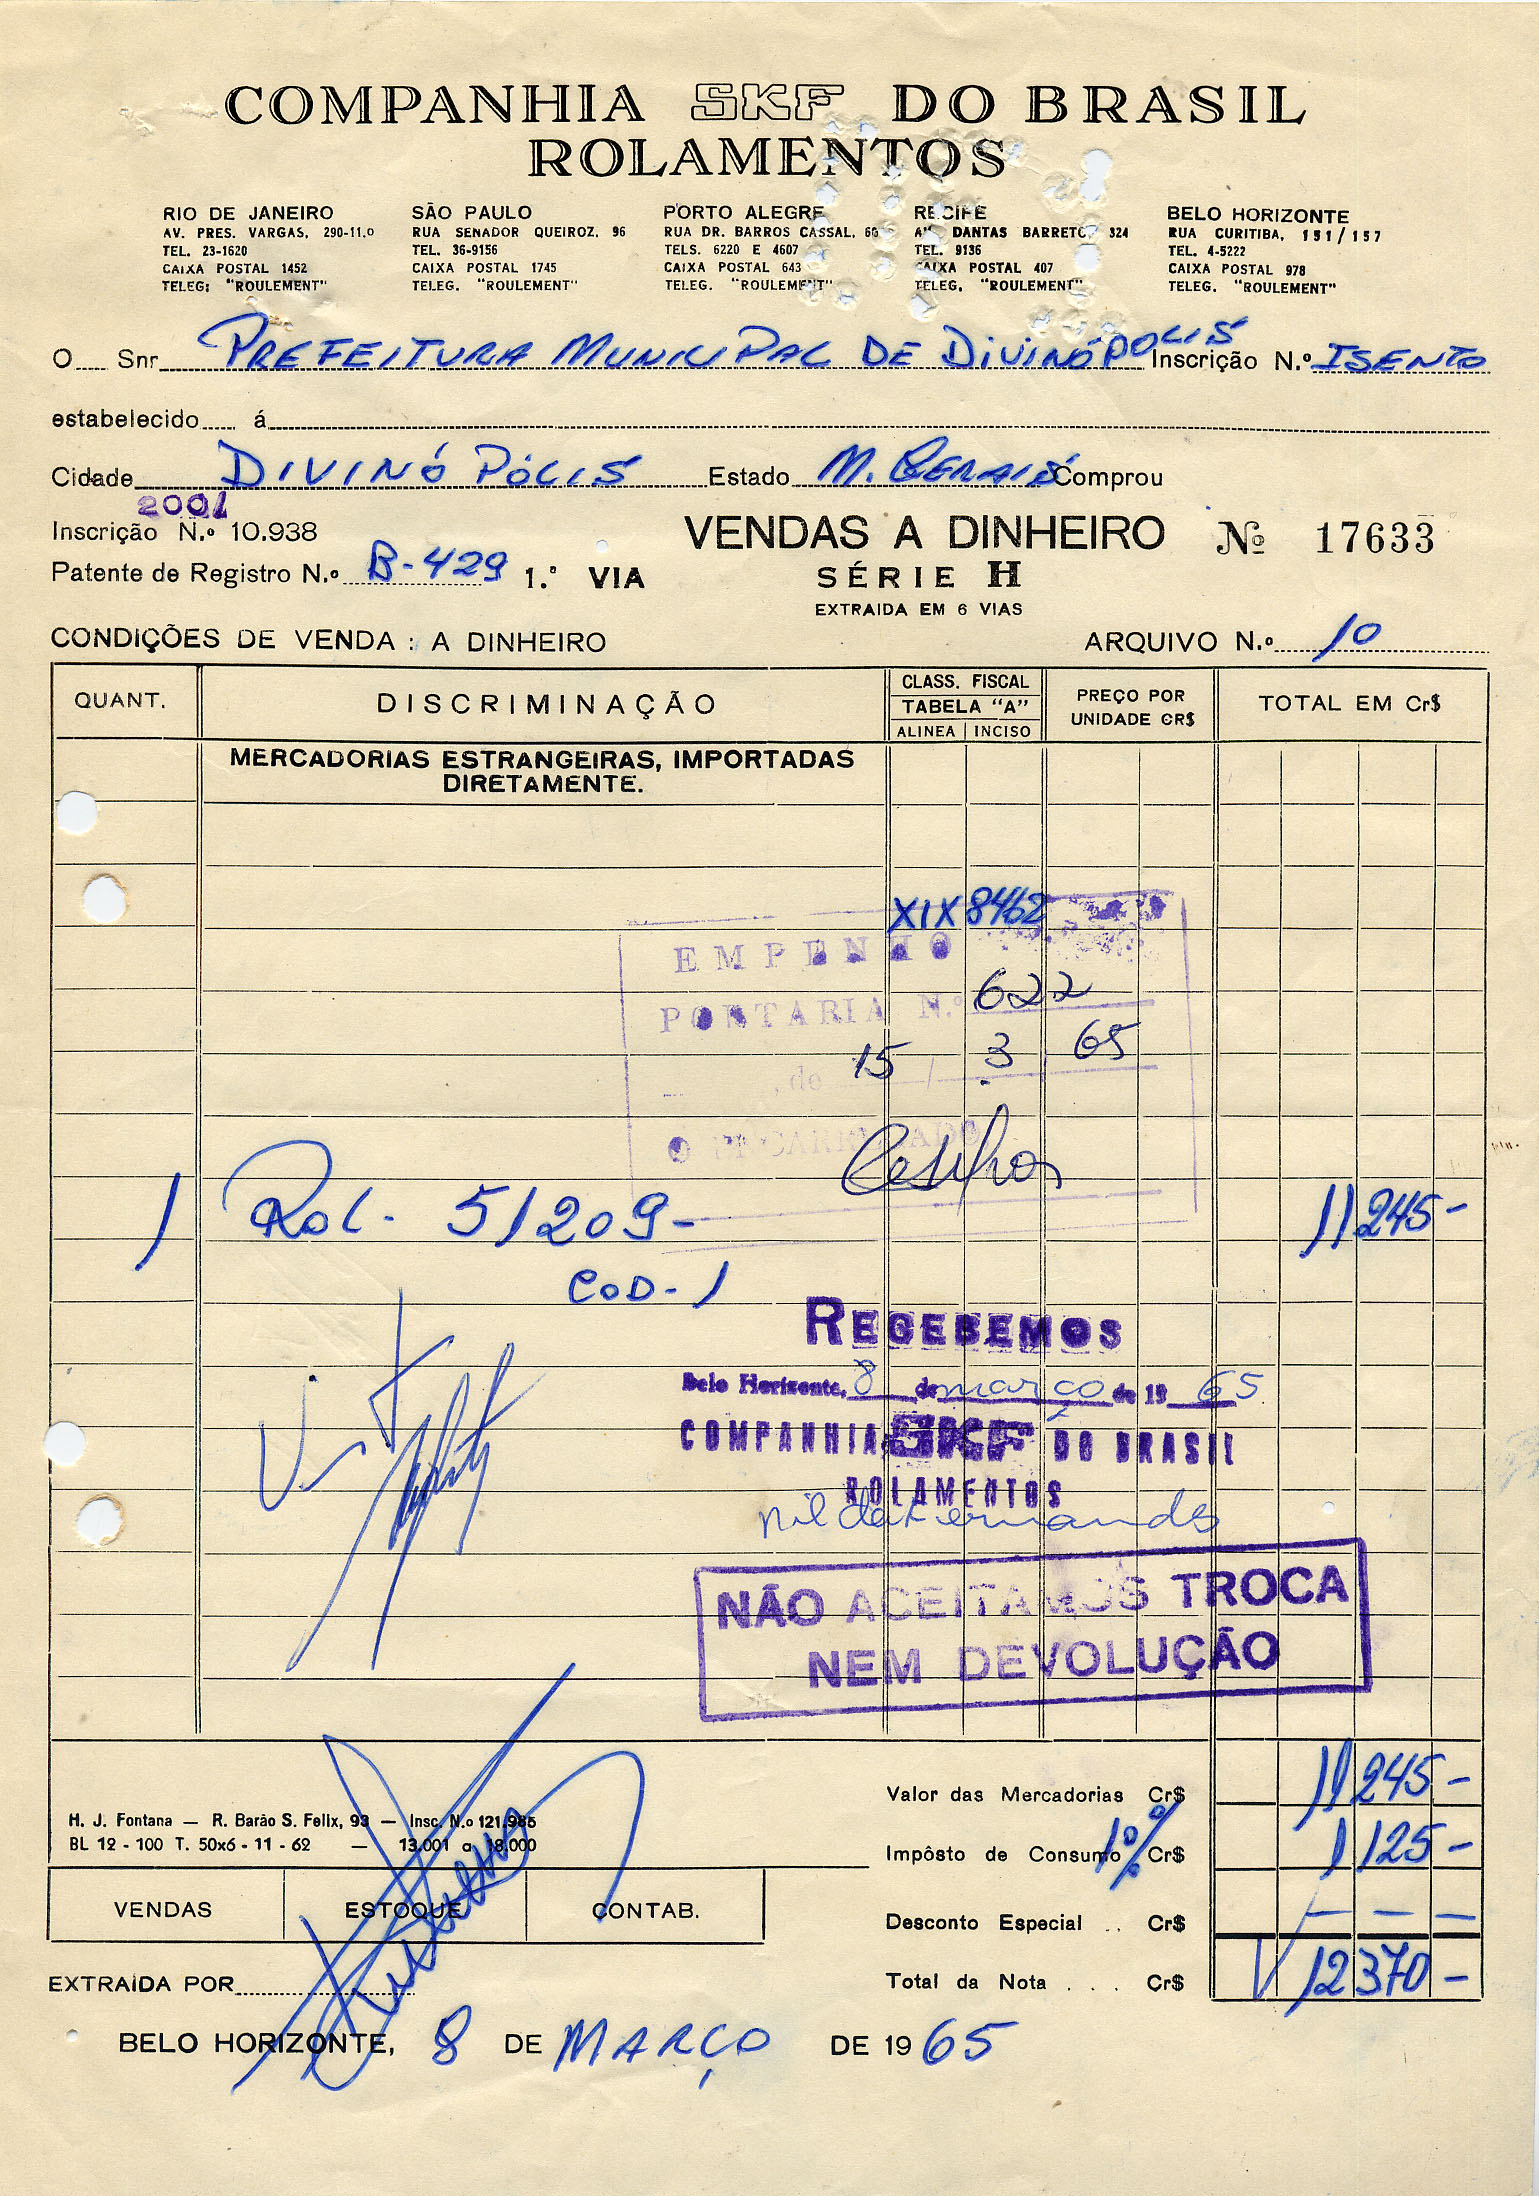 COMPANHIA SKF DO BRASIL
ROLAMENTOS
RIO DE JANEIRO
AV. PRES. VARGAS, 290-11.º
TEL. 23-1620
CAIXA POSTAL 1452
TELEG: "ROULEMENT"
SÃO PAULO
RUA SENADOR QUEIROZ, 96
TEL. 36-9156
CAIXA POSTAL 1745
TELEG. "ROULEMENT"
PORTO ALEGRE
RUA DR. BARROS CASSAL, 60
TELS. 6220 E 4607
CAIXA POSTAL 643
TELEG. "ROULEMENT"
RECIFE
AV. DANTAS BARRETO, 324
TEL. 9136
CAIXA POSTAL 407
TELEG. "ROULEMENT"
BELO HORIZONTE
RUA CURITIBA, 151/157
TEL. 4-5222
CAIXA POSTAL 978
TELEG. "ROULEMENT"
O Snr PREFEITURA MUNICIPAL DE DIVINÓPOLIS Inscrição N.º ISENTO
estabelecido á
Cidade DIVINÓPOLIS Estado M. GERAIS Comprou
2001
Inscrição N.º 10.938
VENDAS A DINHEIRO Nº 17633
Patente de Registro N.º B-429 1.ª VIA
SÉRIE H
EXTRAIDA EM 6 VIAS
CONDIÇÕES DE VENDA : A DINHEIRO
ARQUIVO N.º 10
QUANT. DISCRIMINAÇÃO CLASS. FISCAL TABELA "A" ALINEA INCISO PREÇO POR UNIDADE CR$ TOTAL EM Cr$
MERCADORIAS ESTRANGEIRAS, IMPORTADAS
DIRETAMENTE.
XIX 8462
EMPENHO
PORTARIA N.º 622
15 de 3 / 65
O ENCARREGADO
1 Rol. 51209- 11245-
COD-1
RECEBEMOS
Belo Horizonte, 8 de março de 19 65
COMPANHIA SKF DO BRASIL
ROLAMENTOS
Nilda Fernandes
NÃO ACEITAMOS TROCA
NEM DEVOLUÇÃO
Valor das Mercadorias Cr$ 11245-
H. J. Fontana — R. Barão S. Felix, 93 — Insc. N.º 121.985
BL 12 - 100 T. 50x6 - 11 - 62 — 13.001 a 18.000
Impôsto de Consumo 10% Cr$ 1125-
VENDAS ESTOQUE CONTAB.
Desconto Especial .. Cr$ — — —
EXTRAÍDA POR
Total da Nota . . . Cr$ 12370-
BELO HORIZONTE, 8 DE MARÇO DE 1965